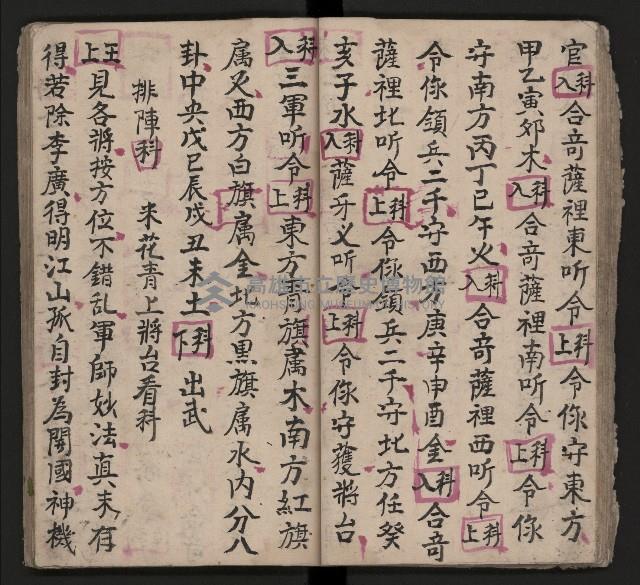 官入科合竒薩裡東听令上科令你守東方
甲乙寅卯木入科合竒薩裡南听令上科令你
守南方丙丁巳午火入科合竒薩裡西听令上科
令你領兵二千守西庚辛申酉金入科合竒
薩裡北听令上科令你領兵二千守北方任癸
亥子水入科薩牙乂听上科令你守獲將台
入科三軍听令上科東方青旗属木南方紅旗
属又西方白旗属金北方黒旗属水内分八
卦中央戊己辰戌丑未土下科出武
排陣科 米花青上將台看科
上王見各將按方位不錯乱軍師妙法真未有
得若除李廣得明江山孤自封為開國神機
高雄市立歷史博物館
KAOHSIUNG MUSEUM OF HISTORY